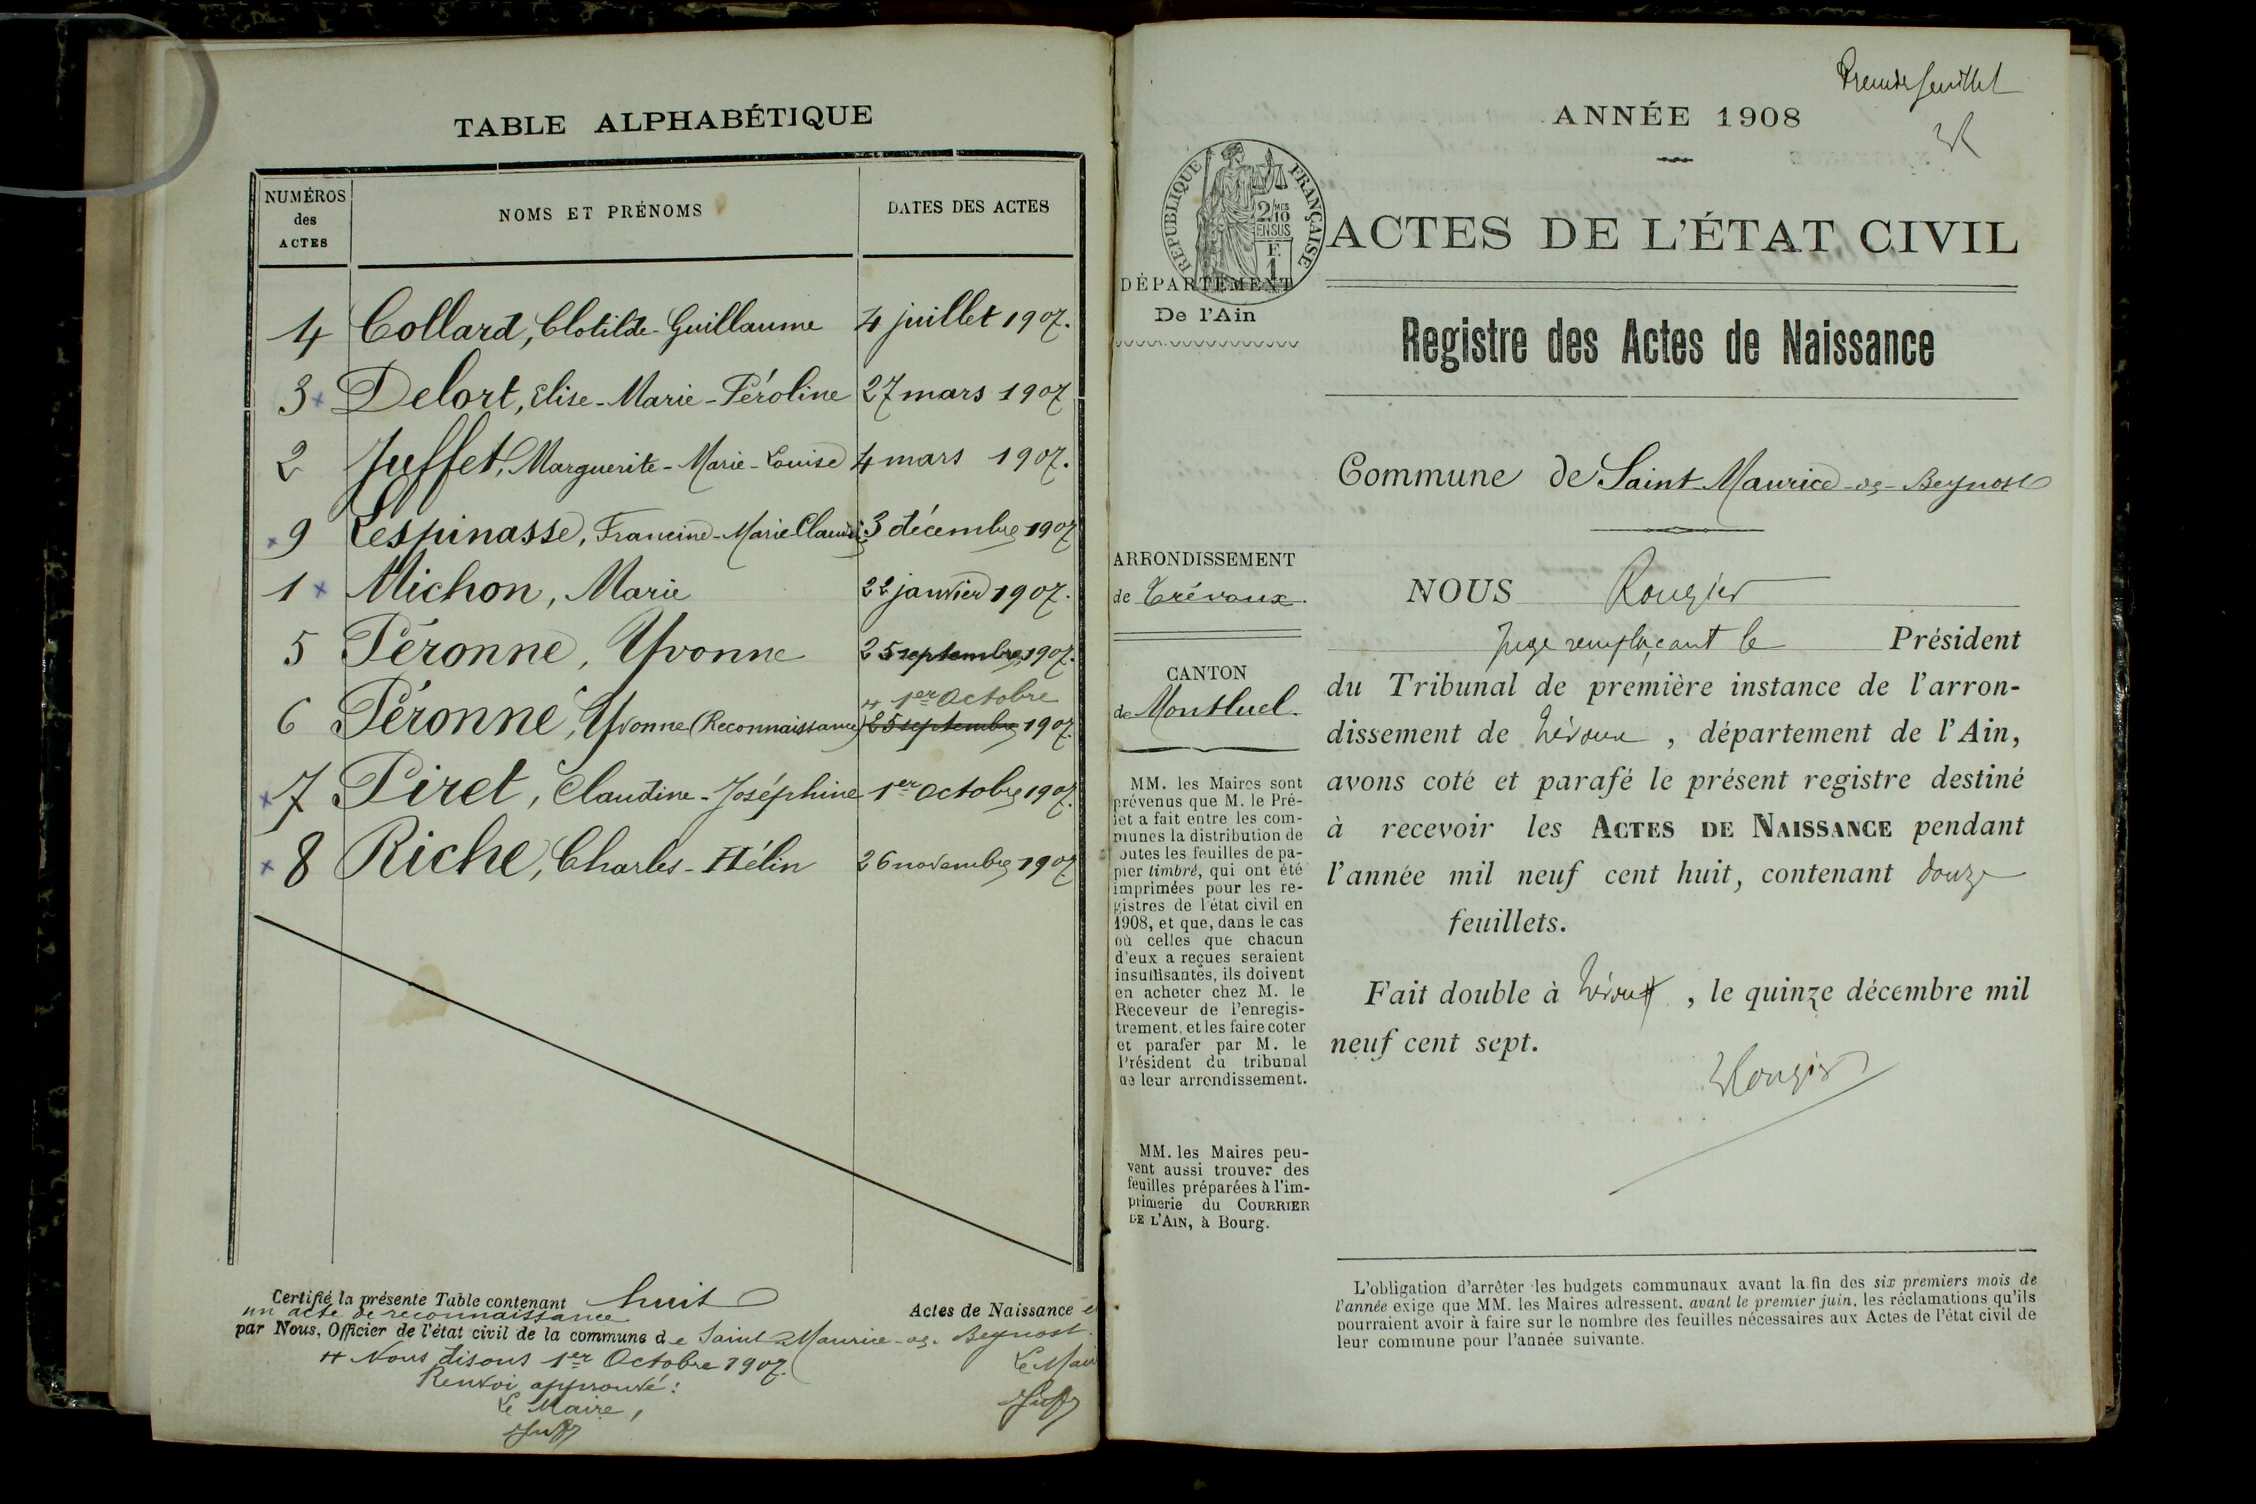 TABLE ALPHABÉTIQUE
NUMÉROS des ACTES NOMS ET PRÉNOMS DATES DES ACTES
4 Collard, Clotilde-Guillaume 4 juillet 1907.
3 Delort, Elise-Marie-Péroline 27 mars 1907
2 Juffet, Marguerite-Marie-Louise 4 mars 1907.
9 Lespinasse, Francine-Marie 3 décembre 1907
1 Michon, Marie 22 janvier 1907.
5 Péronne, Yvonne 25 septembre 1907.
1er Octobre
6 Péronne, Yvonne (Reconnaissance) 25 septembre 1907.
7 Piret, Claudine-Joséphine 1er Octobre 1907.
8 Riche, Charles-Hélin 26 novembre 1907
Certifié la présente Table contenant huit Actes de Naissance et
un acte de reconnaissance
par Nous, Officier de l'état civil de la commune de Saint-Maurice-de-Beynost.
Nous disons 1er Octobre 1907.
Le Mair
Renvoi approuvé :
Le Maire,
Premier feuillet
ANNÉE 1908
RÉPUBLIQUE FRANÇAISE
2 MES 10 EN SUS
F. 1
ACTES DE L'ÉTAT CIVIL
DÉPARTEMENT
De l'Ain
Registre des Actes de Naissance
Commune de Saint-Maurice-de-Beynost
ARRONDISSEMENT
de Trévoux.
CANTON
de Montluel.
MM. les Maires sont
prévenus que M. le Pré-
fet a fait entre les com-
munes la distribution de
toutes les feuilles de pa-
pier timbré, qui ont été
imprimées pour les re-
gistres de l'état civil en
1908, et que, dans le cas
où celles que chacun
d'eux a reçues seraient
insuffisantes, ils doivent
en acheter chez M. le
Receveur de l'enregis-
trement, et les faire coter
et parafer par M. le
Président du tribunal
de leur arrondissement.
MM. les Maires peu-
vent aussi trouver des
feuilles préparées à l'im-
primerie du COURRIER
DE L'AIN, à Bourg.
NOUS Rougier
Juge remplaçant le Président
du Tribunal de première instance de l'arron-
dissement de Trévoux, département de l'Ain,
avons coté et parafé le présent registre destiné
à recevoir les ACTES DE NAISSANCE pendant
l'année mil neuf cent huit, contenant douze
feuillets.
Fait double à Trévoux, le quinze décembre mil
neuf cent sept.
Rougier
L'obligation d'arrêter les budgets communaux avant la fin des six premiers mois de
l'année exige que MM. les Maires adressent, avant le premier juin, les réclamations qu'ils
pourraient avoir à faire sur le nombre des feuilles nécessaires aux Actes de l'état civil de
leur commune pour l'année suivante.